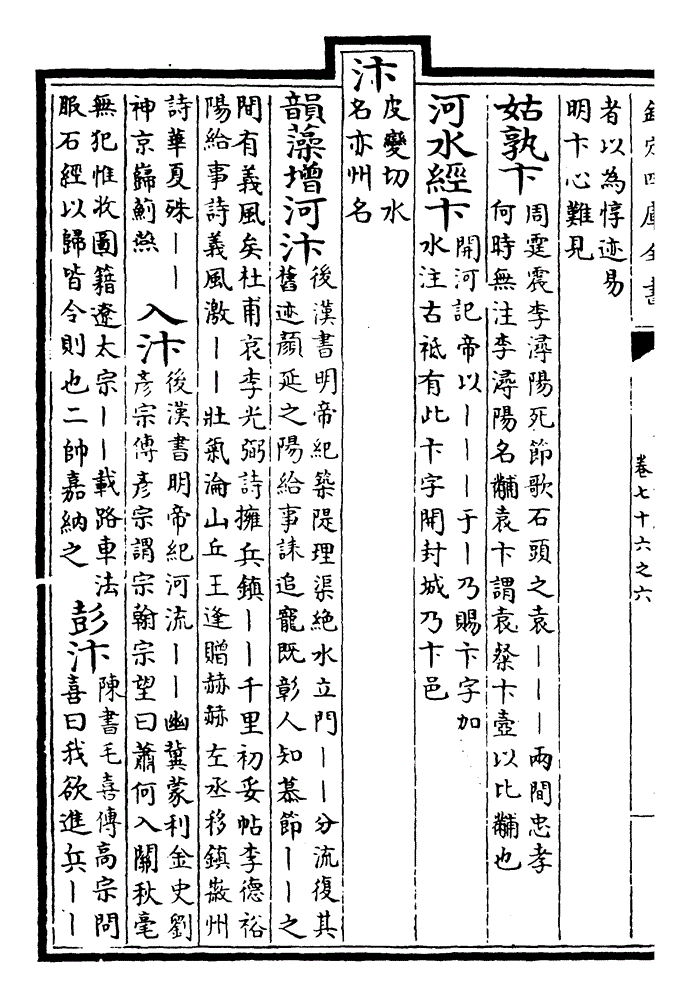 欽定四庫全書 卷七十六之六
者以為惇迹易
明卞心難見
姑孰卞
周霆震李潯陽死節歌石頭之袁｜｜｜兩間忠孝
何時無注李潯陽名黼袁卞謂袁粲卞壼以比黼也
河水經卞
開河記帝以｜｜｜于｜乃賜卞字加
水注古祗有此卞字開封城乃卞邑
汴
皮變切水
名亦州名
韻藻增河汴
後漢書明帝紀築隄理渠絶水立門｜｜分流復其
舊迹顔延之陽給事誄追寵既彰人知慕節｜｜之
間有義風矣杜甫哀李光弼詩擁兵鎮｜｜千里初妥帖李德裕
陽給事詩義風激｜｜壯氣淪山丘王逢贈赫赫左丞移鎮嶶州
詩華夏殊｜｜
神京巋薊燕
入汴
後漢書明帝紀河流｜｜幽冀蒙利金史劉
彦宗傳彦宗謂宗翰宗望曰蕭何入關秋毫
無犯惟收圖籍遼太宗｜｜載路車法
服石經以歸皆令則也二帥嘉納之
彭汴
陳書毛喜傳高宗問
喜曰我欲進兵｜｜